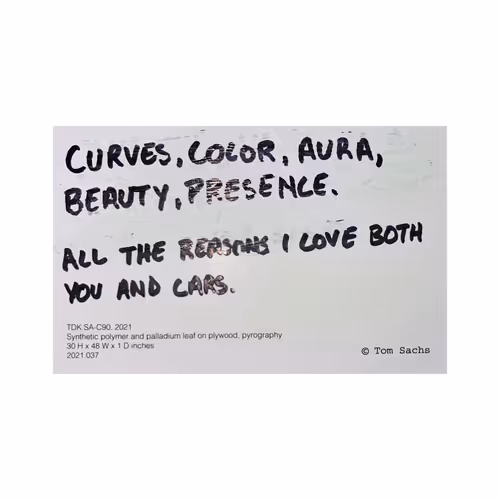 CURVES, COLOR, AURA,
BEAUTY, PRESENCE.
ALL THE REASONS I LOVE BOTH
YOU AND CARS.
TDK SA-C90, 2021
Synthetic polymer and palladium leaf on plywood, pyrography
30 H x 48 W x 1 D inches
2021.037
© Tom Sachs